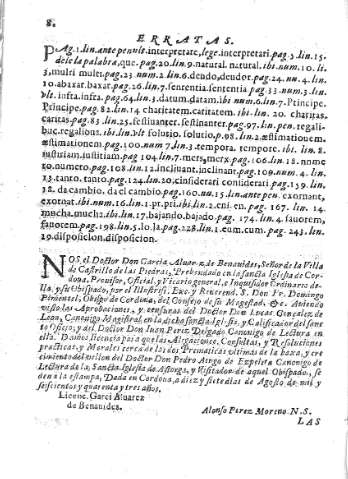 8.
ERRATAS.
PAg. 1. lin. ante penult. interpretate, lege. interpretari. pag. 5. lin. 15.
dele la palabra, que. pag. 20. lin. 9. natural. natural. ibi. num. 10. li-
3, multi multi. pag. 23. num. 2. lin. 6. deudo, deudor. pag. 24. nu. 4. lin.
10. abaxar. baxar. pag. 26. lin. 7. sentensia. sententia pag. 33. num. 3. lin.
vlt. infra. infra. pag. 64. lin. 3. datum. datam. ibi num. 6. lin. 7. Principe.
Principe. pag. 82. lin. 14 charitatem. caritatem. ibi. lin. 20. charitas.
caritas. pag. 83. lin. 25. festinauer. festinanter. pag. 97. lin. pen. regali-
buc. regalibus. ibi. lin. vlt solutio. solutio. p. 98. lin. 2. æstimationem.
æstimationem. pag. 100. num 7. lin. 3. tempora. tempore. ibi. lin. 8.
iustitiam. pag 104. lin. 7. mers, merx. pag. 106. lin. 18. nume
ro. numero. pag. 108. lin. 12. inclinant. pag. 109. num. 4. lin.
13. tanto. tanto. pag. 124. lin. 20. considerari pag. 159. lin.
12. da cambio. da el cambio. pag. 160. num. 15. lin. ante pen. exornant,
exornat. ibi. num. 16. lin. 1. eni. en. pag. 167. lin. 14.
mucha. mucha. ibi. lin. 17. bajando, bajado. pag. 174. lin. 4. fauorem,
fauorem. pag. 198. lin. 5. lo. la. pag. 228. lin. 1. cum. cum. pag. 243. lin.
19. disposicion. disposicion.
NOS, el Doctor Don Garcia Aluarez, de Benauides, Señor de la Villa
de Castrillo de las Piedras, Prebendado en la Sancta Iglesia de Cor-
doua, Prouisor, Oficial, y Vicario general, e Inquisidor Ordinario de-
lla, y su Obispado, por el Illustriss. Exc. y Reuerend. S. Don Fr. Domingo
Pimentel, Obispo de Cordoua, del Consejo de su Magestad, &c. Auiendo
visto las Aprobaciones, y censuras del Doctor Don Lucas Gonçalez de
Leon, Canonigo Magistral en la dicha Sancta Iglesia, y Calificador del sanc
to Oficio, y del Doctor Don Iuan Perez Delgado Canonigo de Lectura en
ella. Damos licencia para que las Alegaciones, Consultas, y Resoluciones
practicas, y Morales cerca de las dos Prematicas vltimas de la baxa, y cre
cimiento del vellon del Doctor Don Pedro Ayngo de Ezpeleta Canonigo de
Lectura de la Sancta Iglesia de Astorga, y Visitador de aquel Obispado, se
den a la estampa, Dada en Cordoua, a diez y siete dias de Agosto de mil y
seiscientos y quarenta y tres años.
Licenc. Garci Aluarez
de Benauides.
Alonso Perez Moreno N. S.
LAS